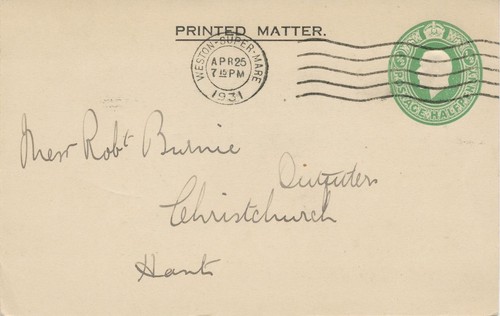 PRINTED MATTER.
WESTON-SUPER-MARE
APR 25
7 15 PM
1931
POSTAGE HALFPENNY
Messr Robt Burnie
Christchurch
Hants